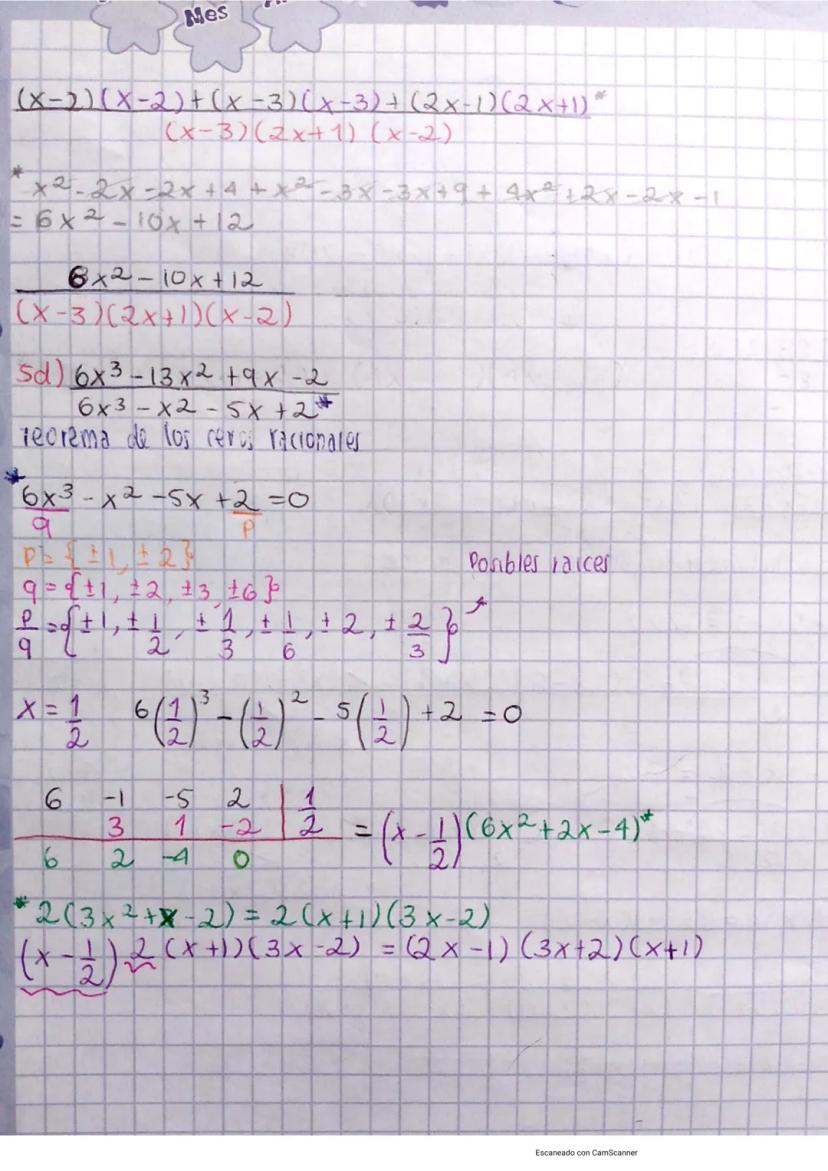 Mes
(x-2)(x-2)+(x-3)(x-3)+(2x-1)(2x+1)*
(x-3)(2x+1)(x-2)
* x² - 2x - 2x + 4 + x² - 3x - 3x + 9 + 4x² + 2x - 2x - 1
= 6x² - 10x + 12
6x² - 10x + 12
(x-3)(2x+1)(x-2)
5d) 6x³ - 13x² + 9x - 2
6x³ - x2 - 5x + 2*
Teorema de los ceros racionales
* 6x³ - x² - 5x + 2 = 0
q p
p = {±1, ±2} Posibles raices
q = {±1, ±2, ±3, ±6}
p/q = {±1, ±1/2, ±1/3, ±1/6, ±2, ±2/3}
x = 1/2 6(1/2)³ - (1/2)² - 5(1/2) + 2 = 0
6 -1 -5 2 | 1/2
3 1 -2 = (x - 1/2)(6x² + 2x - 4)*
6 2 -4 0
* 2(3x² + x - 2) = 2(x+1)(3x-2)
(x - 1/2) 2 (x+1)(3x-2) = (2x-1)(3x+2)(x+1)
Escaneado con CamScanner